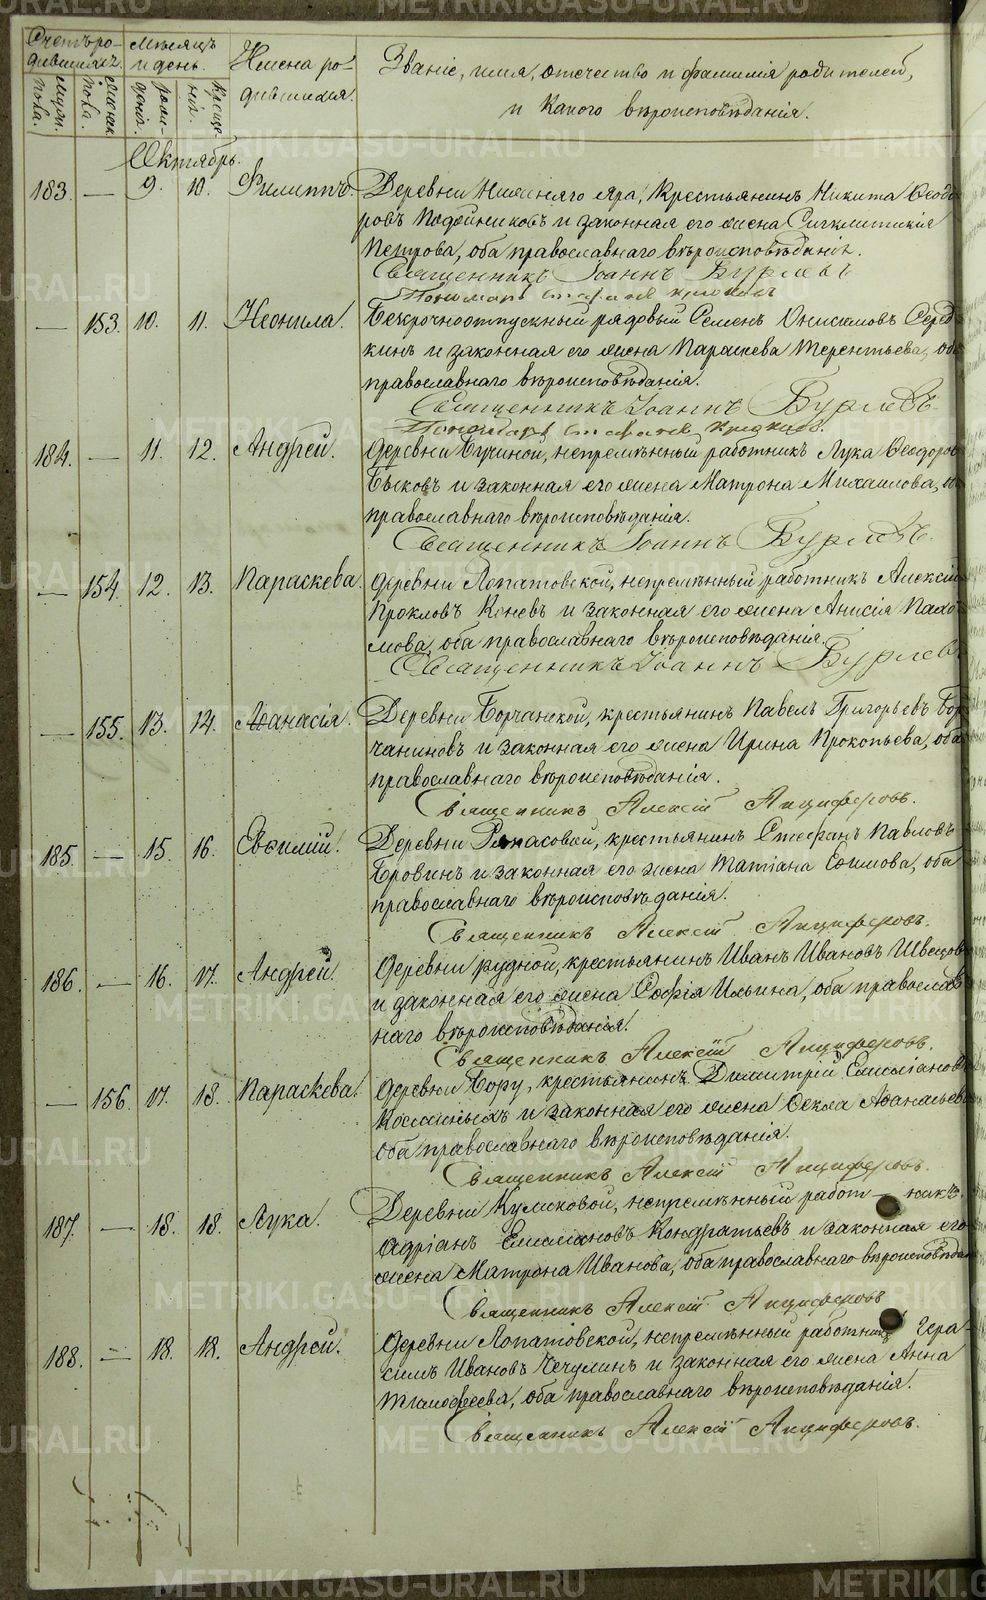 Счетъ родившихся.
Мѣсяцъ и день.
Имена родившихся.
Званіе, имя, отечество и фамилія родителей,
и какого вѣроисповѣданія.
Муж. пола.
Женск. пола.
рожденія.
крещенія.
Октябрь.
183. — 9. 10. Филиппъ. Деревни Нижняго Яра, крестьянинъ Никита Ѳеодо
ровъ Подойниковъ и законная его жена Сигклитикія
Петрова, оба православнаго вѣроисповѣданія.
Священникъ Іоаннъ Бурлевъ
Пономарь Стефанъ
— 153. 10. 11. Неонила. Безсрочноотпускный рядовый Семенъ Онисимовъ Серед
кинъ и законная его жена Параскева Терентьева, оба
православнаго вѣроисповѣданія.
Священникъ Іоаннъ Бурлевъ
Пономарь Стефанъ
184. — 11. 12. Андрей. Деревни Бучиной, непремѣнный работникъ Лука Ѳеодоровъ
Быковъ и законная его жена Матрона Михаилова, оба
православнаго вѣроисповѣданія.
Священникъ Іоаннъ Бурлевъ.
— 154. 12. 13. Параскева. Деревни Лопатовской, непремѣнный работникъ Алексій
Прокловъ Коневъ и законная его жена Анисія Пахо
мова, оба православнаго вѣроисповѣданія.
Священникъ Іоаннъ Бурлевъ
— 155. 13. 14. Аѳанасія. Деревни Борчанской, крестьянинъ Павелъ Григорьевъ Бор
чаниновъ и законная его жена Ирина Прокопьева, оба
православнаго вѣроисповѣданія.
Священникъ Алексій Анциферовъ.
185. — 15. 16. Евѳимій. Деревни крестьянинъ Стефанъ Павловъ
Бровинъ и законная его жена Татіана Еѳимова, оба
православнаго вѣроисповѣданія.
Священникъ Алексій Анциферовъ.
186. — 16. 17. Андрей. Деревни Рудной, крестьянинъ Иванъ Ивановъ Швецовъ
и законная его жена Софія Ильина, оба православ
наго вѣроисповѣданія.
Священникъ Алексій Анциферовъ.
— 156. 17. 18. Параскева. Деревни Бору, крестьянинъ Димитрій Емиліановъ
Косминыхъ и законная его жена Ѳекла Аѳанасьева
оба православнаго вѣроисповѣданія.
Священникъ Алексій Анциферовъ.
187. — 18. 18. Лука. Деревни Куликовой, непремѣнный работ — никъ.
Адріанъ Емиліановъ Кондратьевъ и законная его
жена Матрона Иванова, оба православнаго вѣроисповѣдан
Священникъ Алексій Анциферовъ
188. — 18. 18. Андрей. Деревни Лопатовской, непремѣнный работникъ Гера-
симъ Ивановъ Чечулинъ и законная его жена Анна
Тимофеева, оба православнаго вѣроисповѣданія.
Священникъ Алексій Анциферовъ.
METRIKI.GASO-URAL.RU